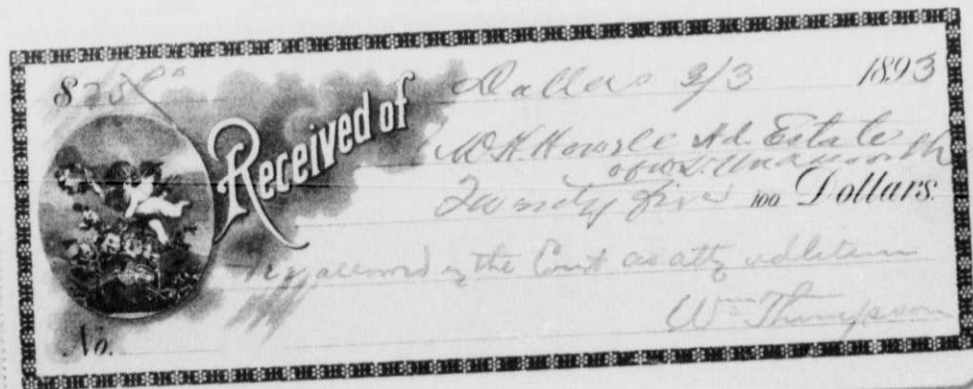 $25 00 Dallas 3/3 1893
Received of W.H. Howsle Ad. Estate
of W.S.
Twenty five 100 Dollars.
allowed by the Court as atty ad litem
No. Wm Thompson